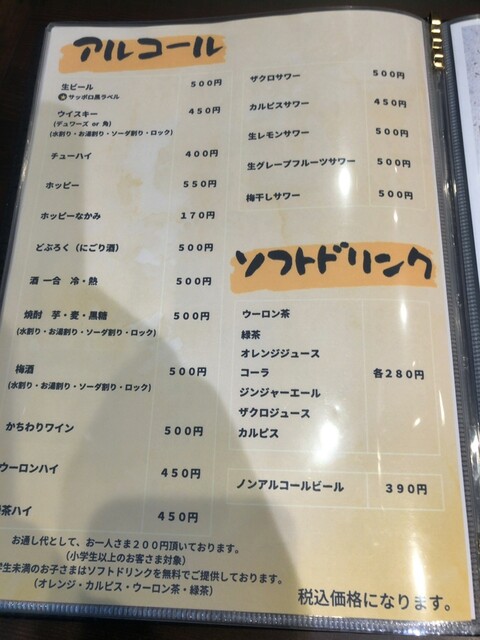 アルコール
生ビール 500円
サッポロ黒ラベル
ウイスキー 450円
(デュワーズ or 角)
(水割り・お湯割り・ソーダ割り・ロック)
チューハイ 400円
ホッピー 550円
ホッピーなかみ 170円
どぶろく（にごり酒） 500円
酒 一合 冷・熱 500円
焼酎 芋・麦・黒糖 500円
(水割り・お湯割り・ソーダ割り・ロック)
梅酒 500円
(水割り・お湯割り・ソーダ割り・ロック)
かちわりワイン 500円
ウーロンハイ 450円
茶ハイ 450円
お通し代として、お一人さま200円頂いております。
(小学生以上のお客さま対象)
学生未満のお子さまはソフトドリンクを無料でご提供しております。
(オレンジ・カルピス・ウーロン茶・緑茶)
ザクロサワー 500円
カルピスサワー 450円
生レモンサワー 500円
生グレープフルーツサワー 500円
梅干しサワー 500円
ソフトドリンク
ウーロン茶
緑茶
オレンジジュース
コーラ 各280円
ジンジャーエール
ザクロジュース
カルピス
ノンアルコールビール 390円
税込価格になります。